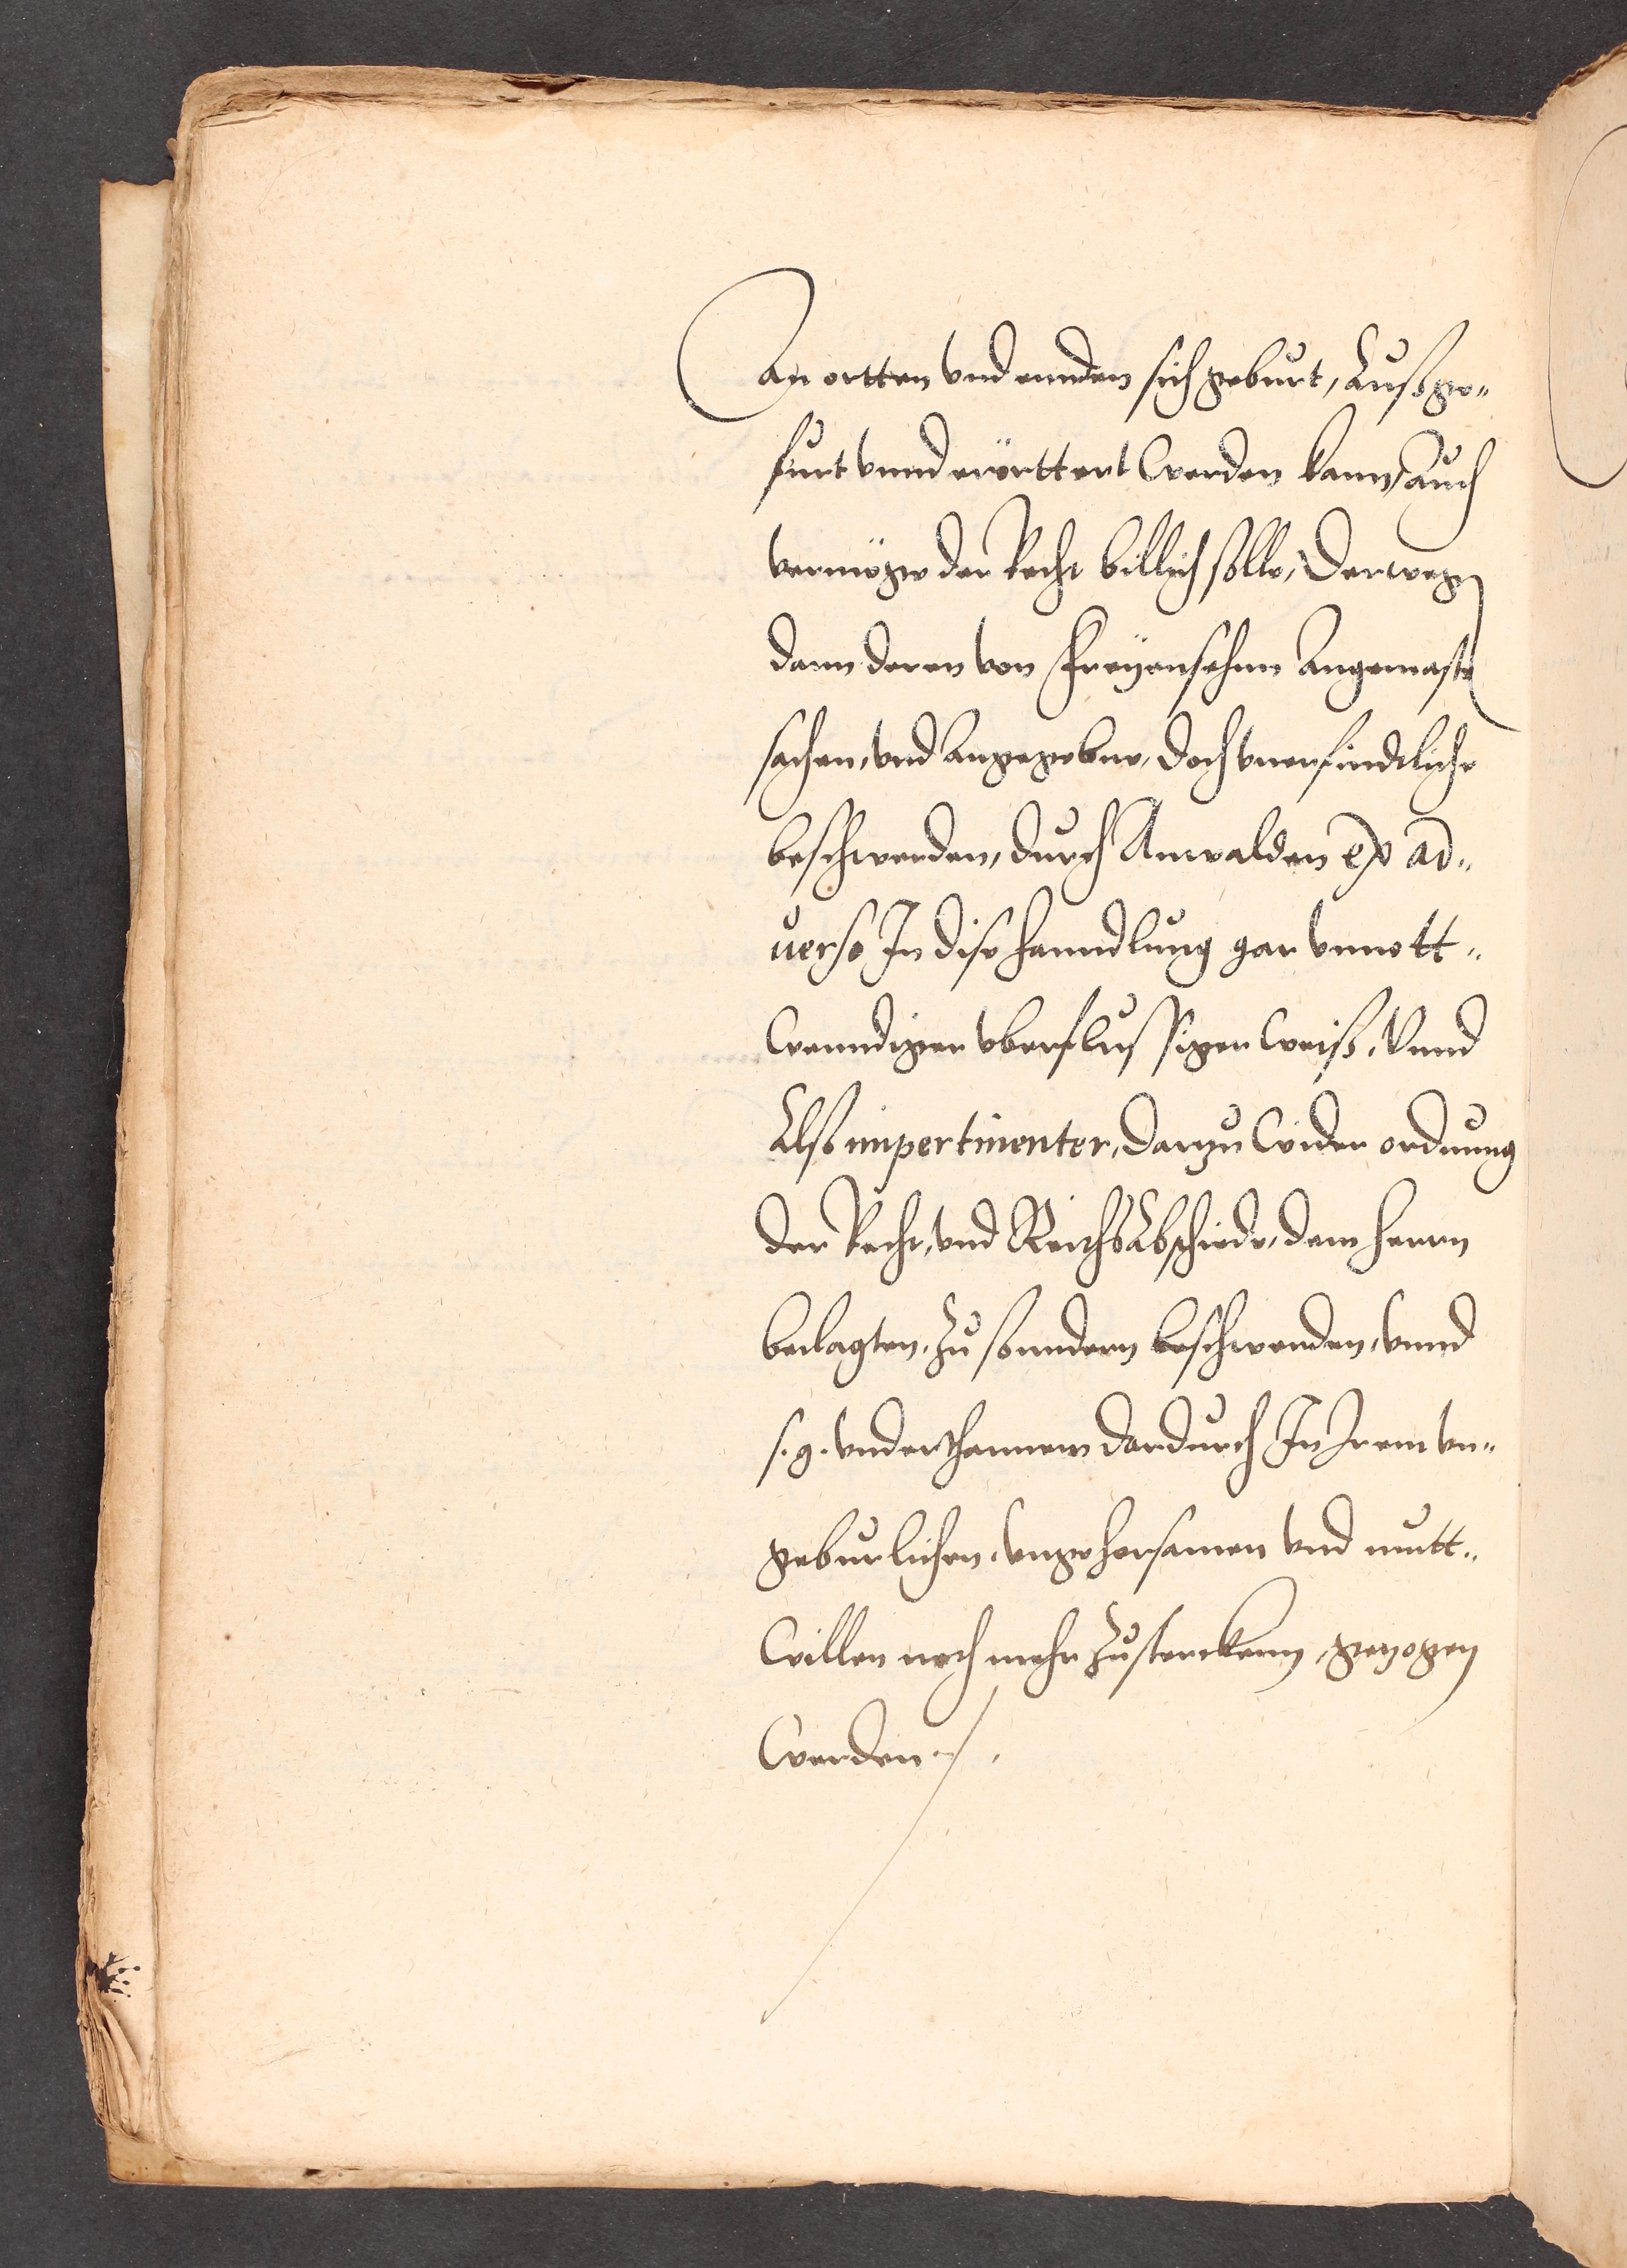 An ortten vnd ennden sich geburt, Außge„
furt vnnd erörttert werden kann, auch
vermöge der Recht billich solle, Derwegen
dann deren von Freyensehen Angemaste
sachen, vnd Angegebne, doch vnerfindtliche
beschwerden, durch Anwalden ex ad„
uerso In dise hanndlung gar vnnott„
wenndiger vberflussiger weiß, Vnnd
Also impertinenter, darzu wider ordnung
der Recht, vnd ReichsAbschiede, dem herrn
beclagten, zu sonndern beschwerden, vnnd
s. g. vnderthannen dardurch In Irem vn„
geburlichen, vngehorsamen vnd mutt„
willen noch mehr zusterckenn, gezogen
werden ./.